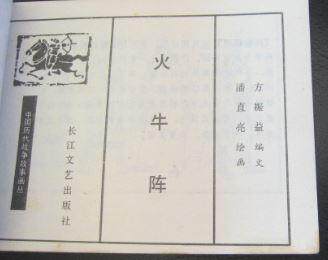 方振益编文
潘直亮绘画
火牛阵
长江文艺出版社
中国历代战争故事画丛